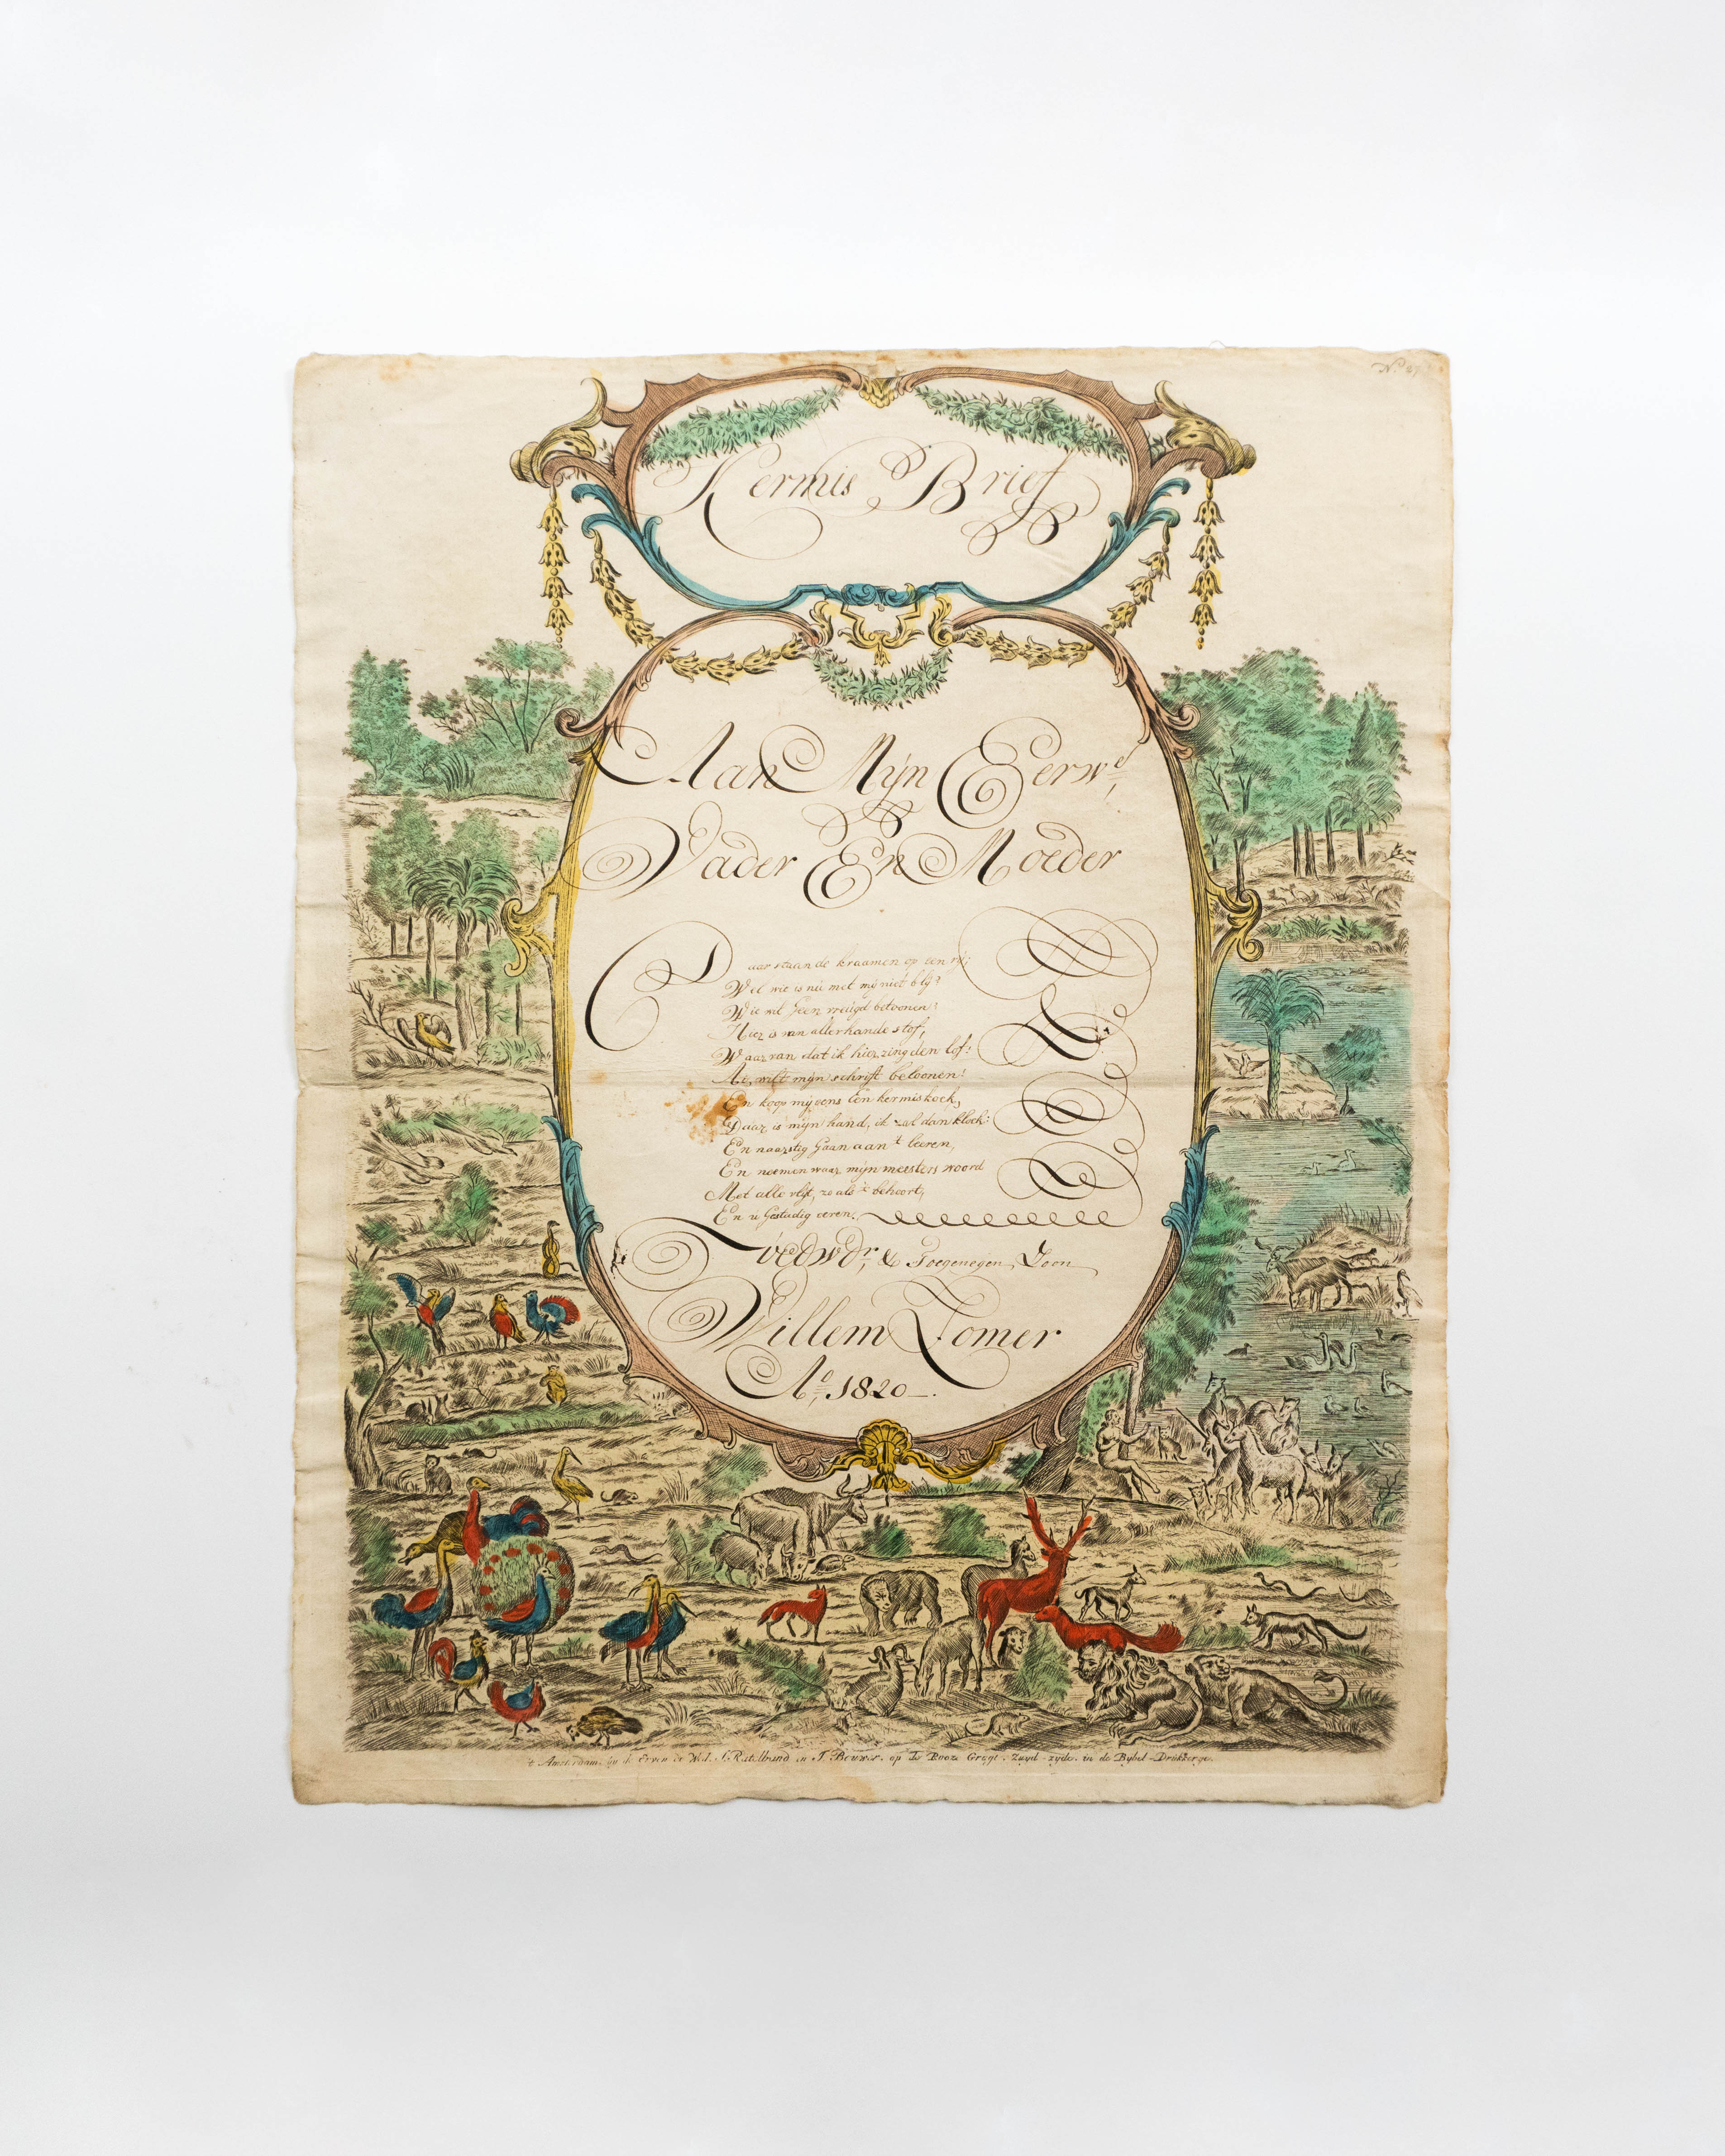 N.o 27
Kermis Brief
Aan Mijn Eerw.d
Vader En Moeder
Daar staan de kraamen op een rij;
Wel wie is nu met mij niet blij?
Wie wil Geen vreugd betoonen?
Hier is van allerhande stof,
Waar van dat ik hier zing den lof:
Ae, wilt mijn schrift beloonen!
En koop mij eens een kermiskoek,
Daar is mijn hand, ik zal dan kloek:
En naarstig Gaan aan 't leeren,
En neemen waar mijn meesters woord
Met alle vlijt, zo als 't behoort,
En u Gestadig eeren.
Uedwdr, & Toegenegen Zoon
Willem Tomer
Ao. 1820.
't Amsterdam, by de Erven de Wed. J. Ratelband en J. Bouwer. op de Rooze Gragt. Zuyd-zyde. in de Bybel-Drukkerye.